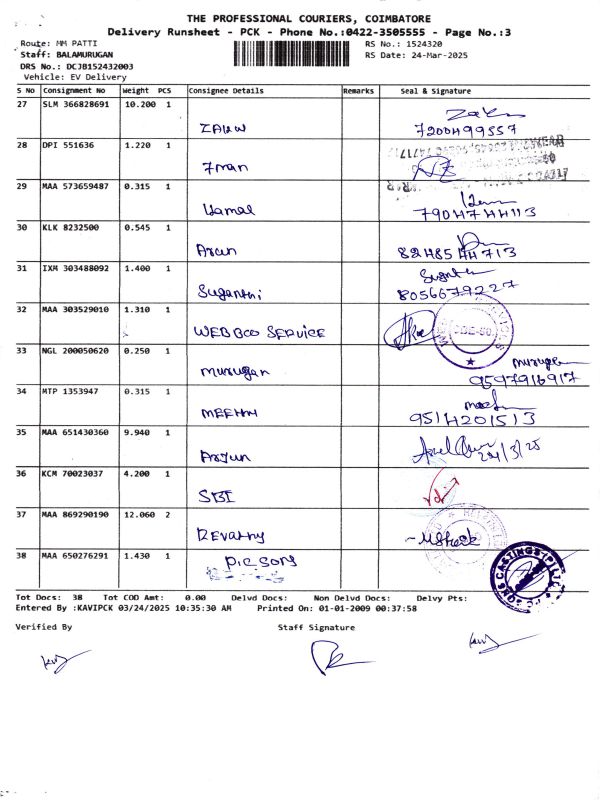 THE PROFESSIONAL COURIERS, COIMBATORE
Delivery Runsheet - PCK - Phone No.:0422-3505555 - Page No.:3
Route: MM PATTI RS No.: 1524320
Staff: BALAMURUGAN RS Date: 24-Mar-2025
DRS No.: DCJB152432003
Vehicle: EV Delivery
S No Consignment No Weight PCS Consignee Details Remarks Seal & Signature
27 SLM 366828691 10.200 1
7200499557
28 DPI 551636 1.220 1
29 MAA 573659487 0.315 1
Kamal 7904744113
30 KLK 8232500 0.545 1
Arun 8248544713
31 IXM 303488092 1.400 1
Suganthi 8056679227
32 MAA 303529010 1.310 1
WEBBOO SERVICE
33 NGL 200050620 0.250 1
murugan 9597916917
34 MTP 1353947 0.315 1
9514201513
35 MAA 651430360 9.940 1
Arjun 24/3/25
36 KCM 70023037 4.200 1
SBI
37 MAA 869290190 12.060 2
Revathy
38 MAA 650276291 1.430 1
P.C SONS
Tot Docs: 38 Tot COD Amt: 0.00 Delvd Docs: Non Delvd Docs: Delvy Pts:
Entered By :KAVIPCK 03/24/2025 10:35:30 AM Printed On: 01-01-2009 00:37:58
Verified By Staff Signature